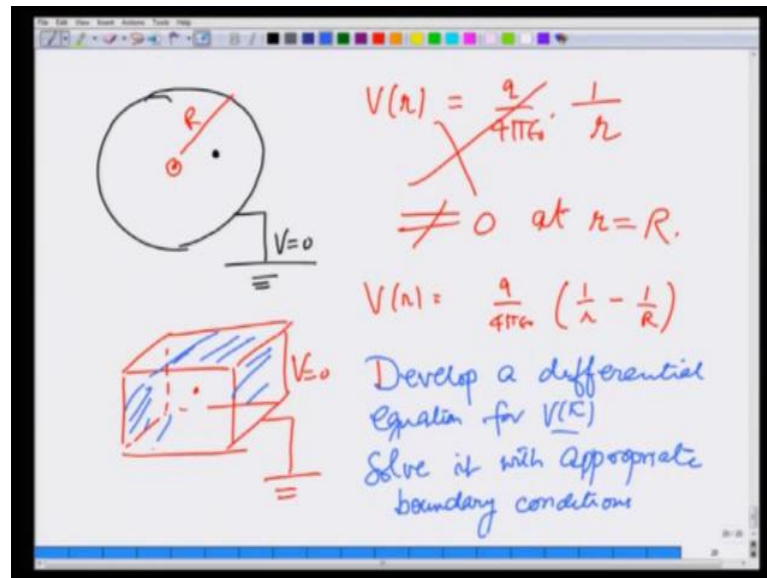 File Edit View Insert Actions Tools Help
R
V=0
V(r) = q/4πε₀ · 1/r
≠ 0 at r=R.
V(r) = q/4πε₀ (1/r - 1/R)
V=0
Develop a differential
equation for V(r)
Solve it with appropriate
boundary conditions